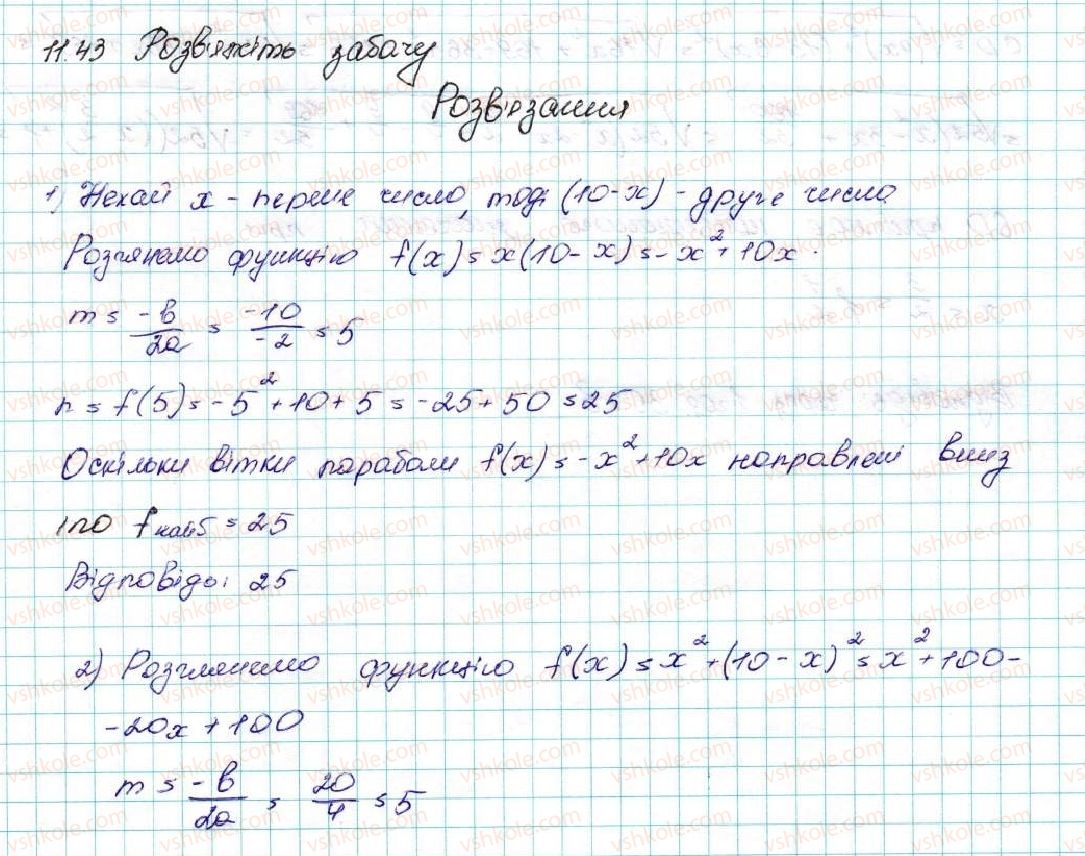 11.43 Розв'яжіть забачу
Розв'язання
1) Нехай x - перше число, тоді (10-x) - друге число
Розглянемо функцію f(x) = x(10-x) = -x²+10x.
m = -b/2a = -10/-2 = 5
n = f(5) = -5²+10+5 = -25+50 = 25
Оскільки вітки параболи f(x) = -x²+10x направлені вниз
то f найб = 25
Відповідь: 25
2) Розглянемо функцію f(x) = x²+(10-x)² = x²+100-
-20x+100
m = -b/2a = 20/4 = 5